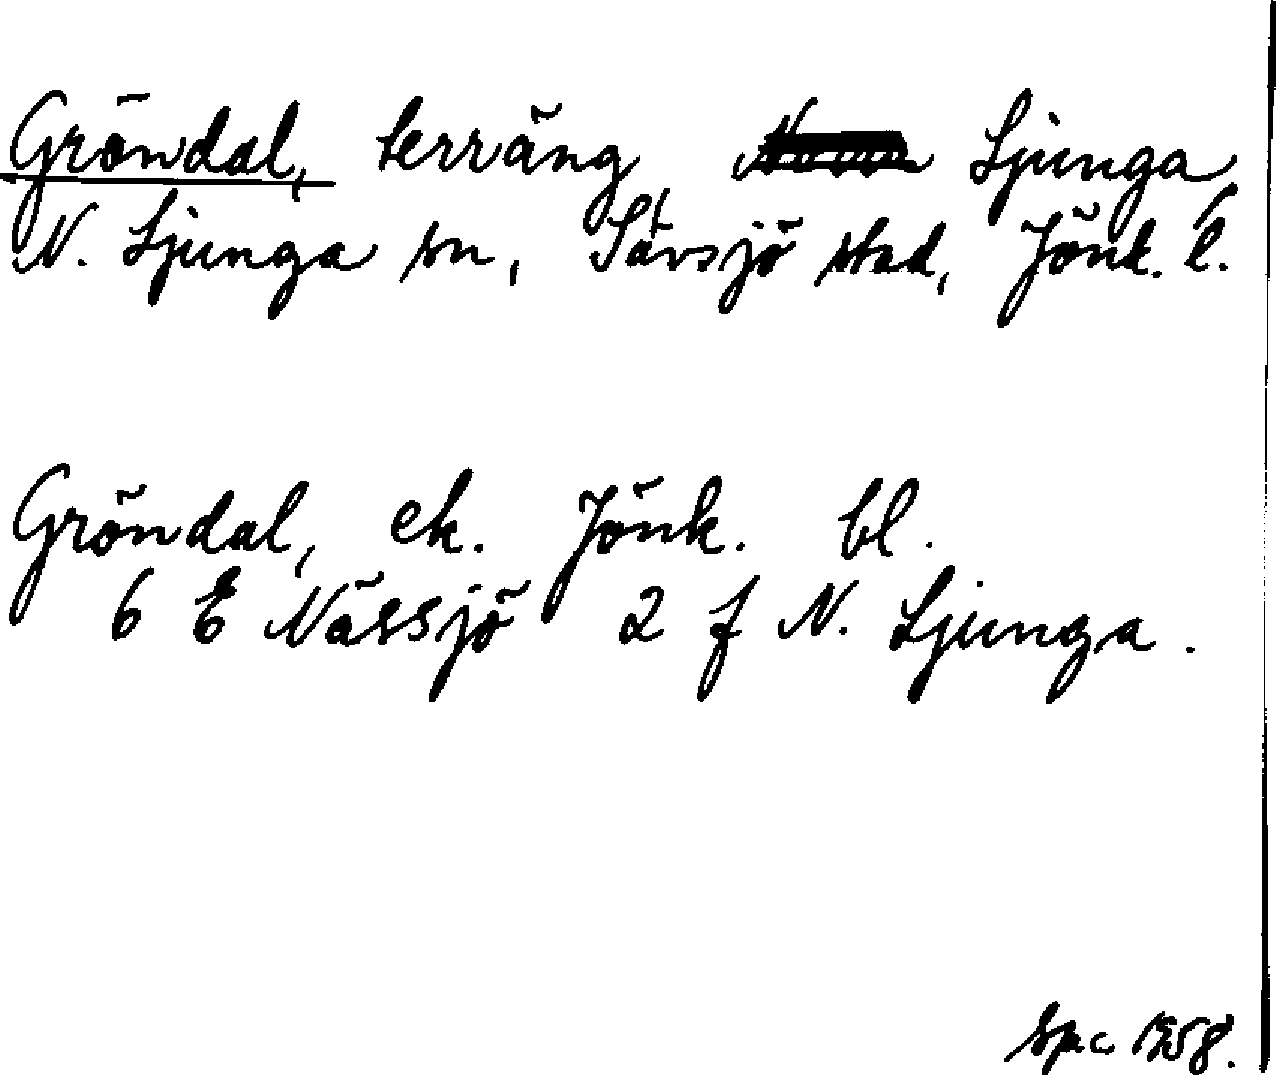 Gröndal, terräng, Ljunga,
N. Ljunga sn, Sävsjö stad, Jönk. l.
Gröndal, ek. Jönk. bl.
6 E Nässjö 2 f N. Ljunga.
1958.